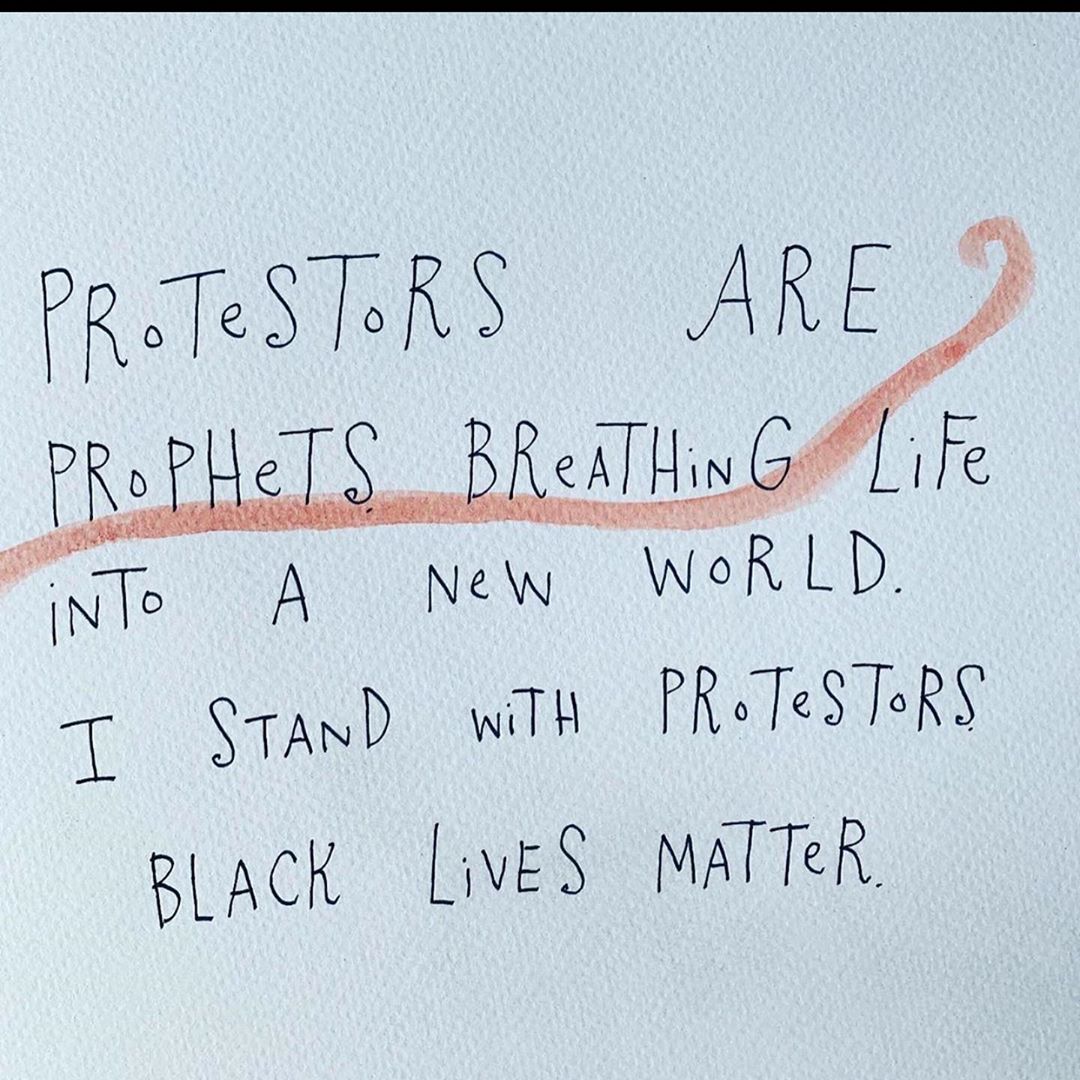 PRoTeSToRS ARE
PRoPHeTS BReATHiNG LiFe
iNTo A NeW WoRLD.
I STAND WiTH PRoTeSToRS.
BLACK LiVES MATTeR.